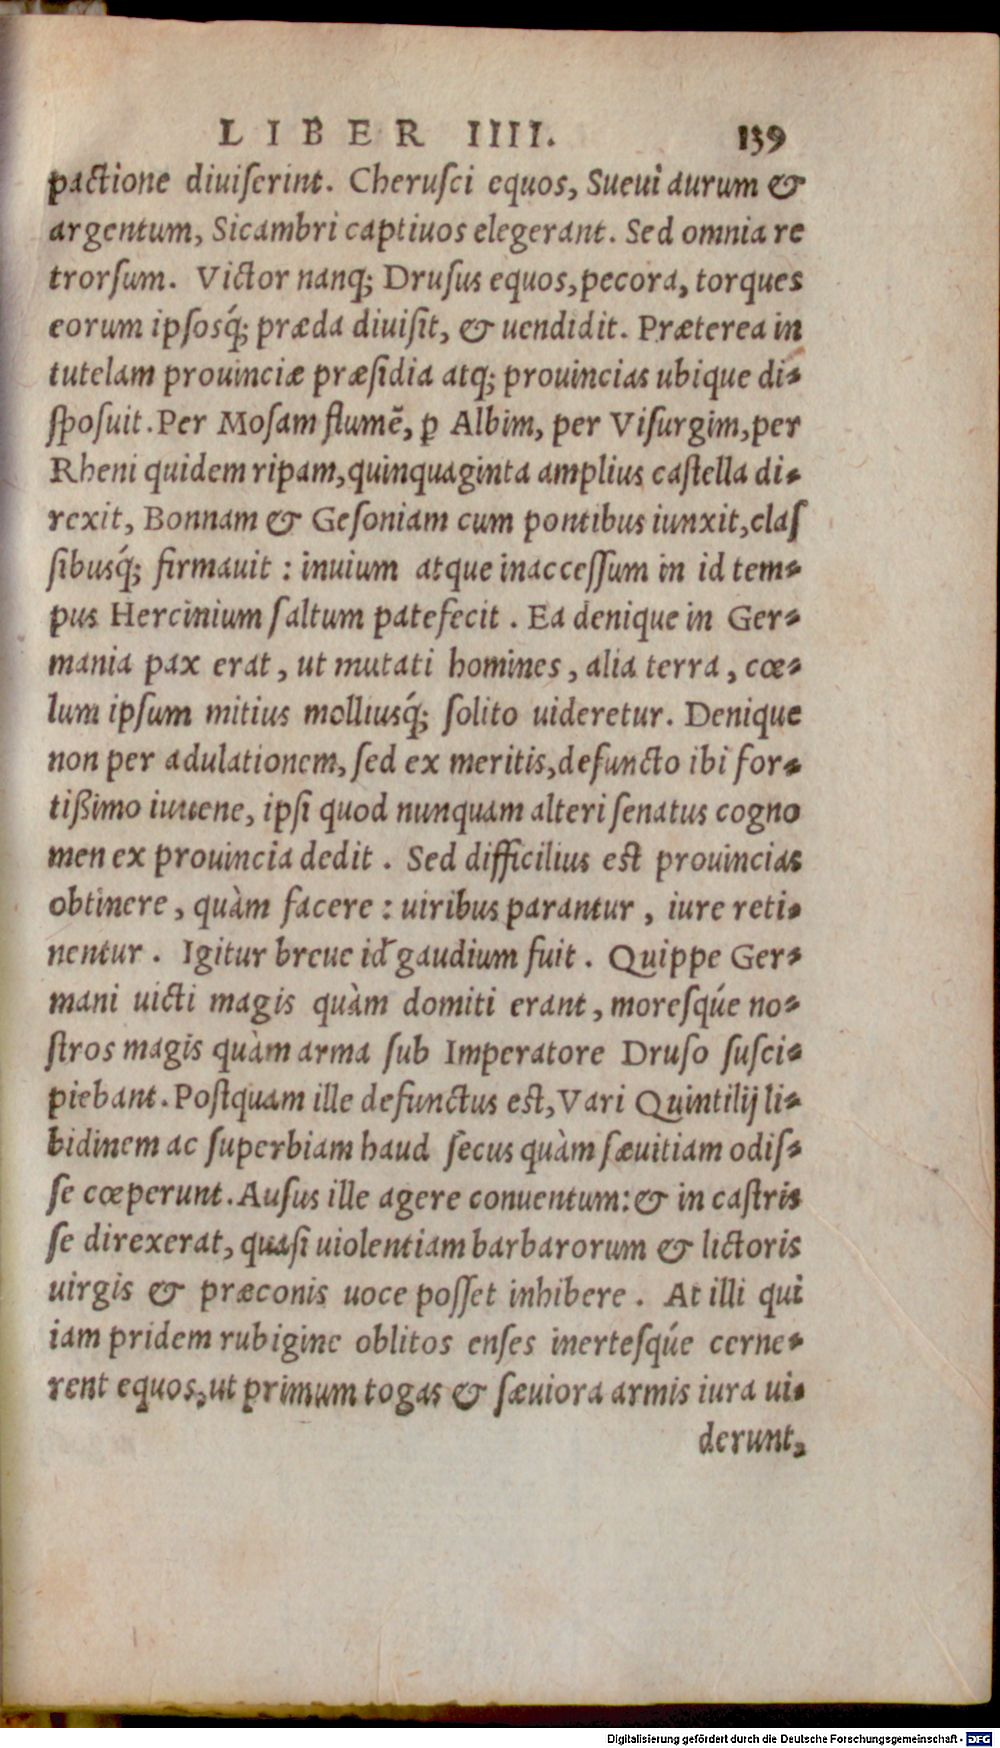 LIBER IIII. 139
pactione diuiserint. Cherusci equos, Sueui aurum &
argentum, Sicambri captiuos elegerant. Sed omnia re
trorsum. Victor nanq; Drusus equos, pecora, torques
eorum ipsosq́; præda diuisit, & uendidit. Præterea in
tutelam prouinciæ præsidia atq; prouincias ubique di-
sposuit. Per Mosam flumẽ, ꝑ Albim, per Visurgim, per
Rheni quidem ripam, quinquaginta amplius castella di-
rexit, Bonnam & Gesoniam cum pontibus iunxit, clas
sibusq́; firmauit : inuium atque inaccessum in id tem-
pus Hercinium saltum patefecit. Ea denique in Ger-
mania pax erat, ut mutati homines, alia terra, cœ-
lum ipsum mitius molliusq́; solito uideretur. Denique
non per adulationem, sed ex meritis, defuncto ibi for-
tißimo iuuene, ipsi quod nunquam alteri senatus cogno
men ex prouincia dedit. Sed difficilius est prouincias
obtinere, quàm facere : uiribus parantur, iure reti-
nentur. Igitur breue id gaudium fuit. Quippe Ger-
mani uicti magis quàm domiti erant, moresq́ue no-
stros magis quàm arma sub Imperatore Druso susci-
piebant. Postquam ille defunctus est, Vari Quintilij li-
bidinem ac superbiam haud secus quàm sæuitiam odis-
se cœperunt. Ausus ille agere conuentum: & in castris
se direxerat, quasi uiolentiam barbarorum & lictoris
uirgis & præconis uoce posset inhibere. At illi qui
iam pridem rubigine oblitos enses inertesq́ue cerne-
rent equos, ut primum togas & sæuiora armis iura ui-
derunt,
Digitalisierung gefördert durch die Deutsche Forschungsgemeinschaft - DFG